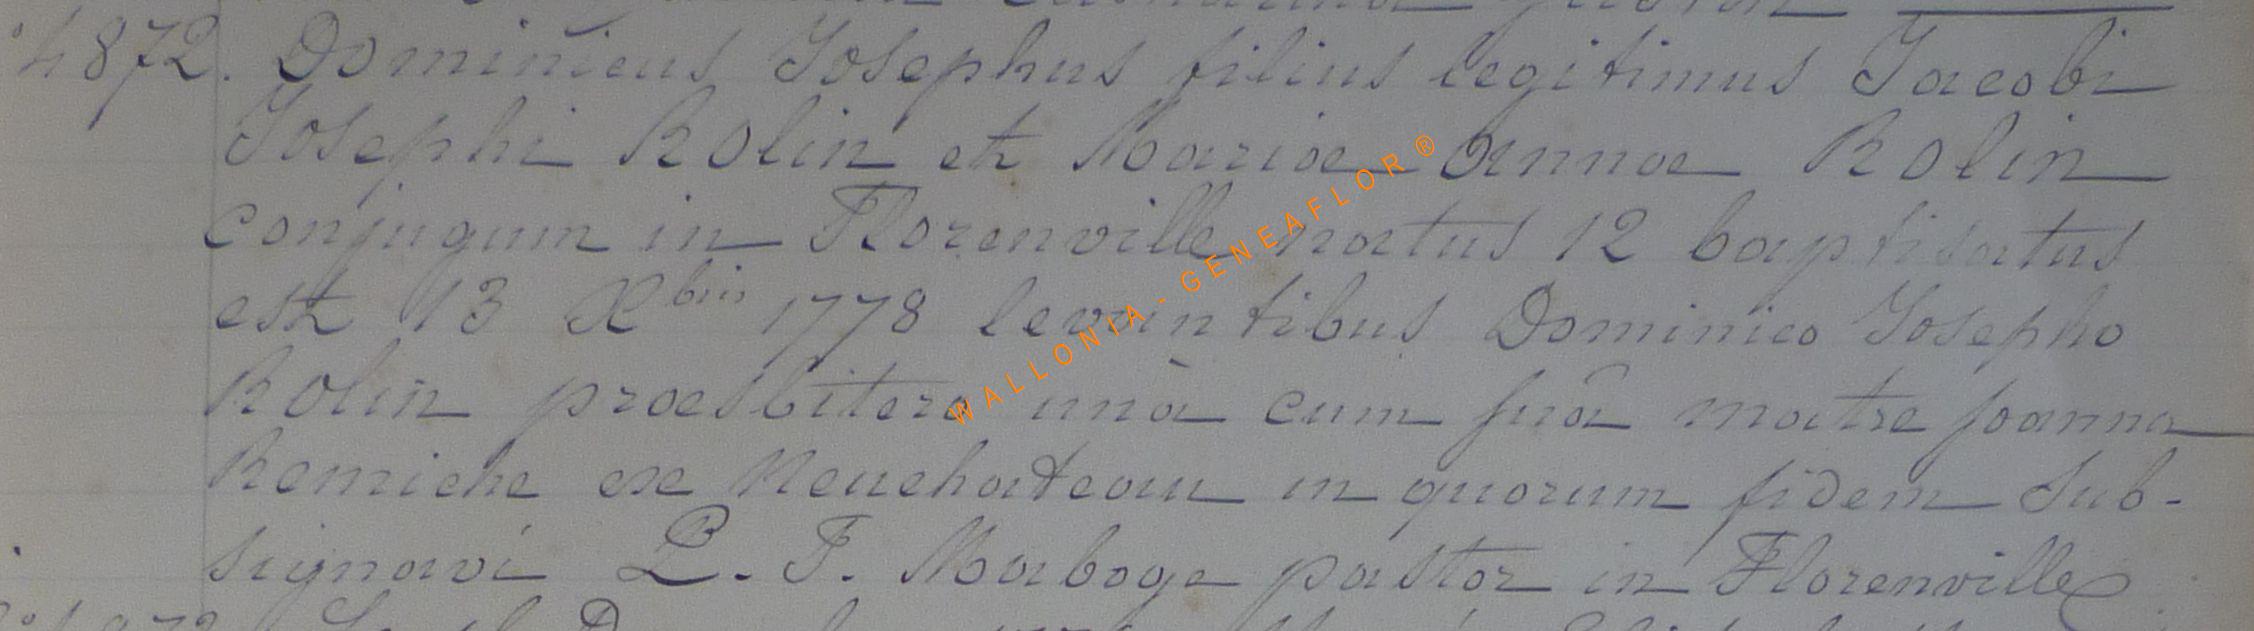 °4872. Dominicus Josephus filius legitimus Jacobi
Josephi Rolin et Mariae Annae Rolin
conjugum in Florenville natus 12 baptisatus
est 13 Xbris 1778 levantibus Dominico Josepho
Rolin praesbitero unà cum suâ matre Joanna
Remiche ex Neuchateau in quorum fidem sub-
signavi L. F. Maboge pastor in Florenville
WALLONIA - GENEAFLOR ®